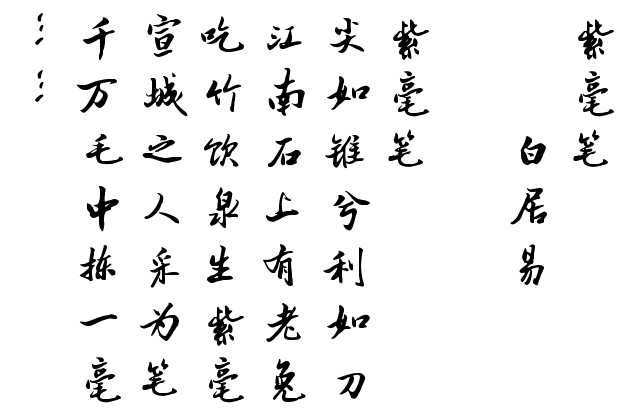 紫毫笔
白居易
紫毫笔
尖如锥兮利如刀
江南石上有老兔
吃竹饮泉生紫毫
宣城之人采为笔
千万毛中拣一毫
……